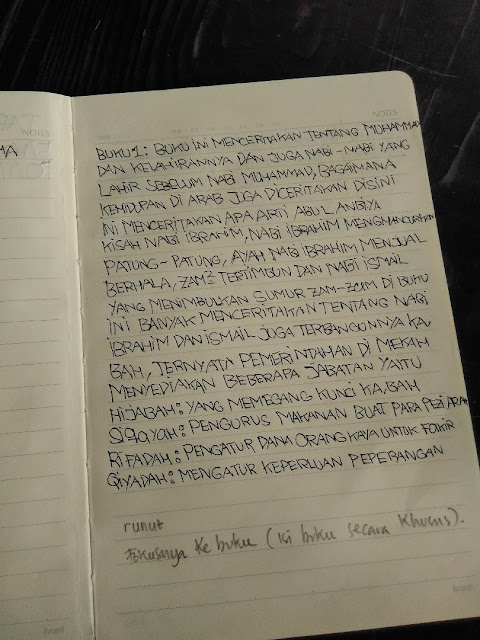 NOTES
NOTES
MA
BUKU 1: BUKU INI MENCERITAKAN TENTANG MUHAMMAD
DAN KELAHIRANNYA DAN JUGA NABI-NABI YANG
LAHIR SEBELUM NABI MUHAMMAD, BAGAIMANA
KEHIDUPAN DI ARAB JUGA DICERITAKAN DISINI
INI MENCERITAKAN APA ARTI ABUL ANBIYA
KISAH NABI IBRAHIM, NABI IBRAHIM MENGHANCURKAN
PATUNG-PATUNG, AYAH NABI IBRAHIM MENJUAL
BERHALA, ZAM² TERTIMBUN DAN NABI ISMAIL
YANG MENIMBULKAN SUMUR ZAM-ZAM DI BUKU
INI BANYAK MENCERITAKAN TENTANG NABI
IBRAHIM DAN ISMAIL JUGA TERBANGUNNYA KA
BAH, TERNYATA PEMERINTAHAN DI MEKAH
MENYEDIAKAN BEBERAPA JABATAN YAITU
HIJABAH: YANG MEMEGANG KUNCI KA'BAH
SIQAYAH: PENGURUS MAKANAN BUAT PARA PEZIARAH
RIFADAH: PENGATUR DANA ORANG KAYA UNTUK FAKIR
QIYADAH: MENGATUR KEPERLUAN PEPERANGAN
runut
Fokusnya ke buku (isi buku secara khusus).